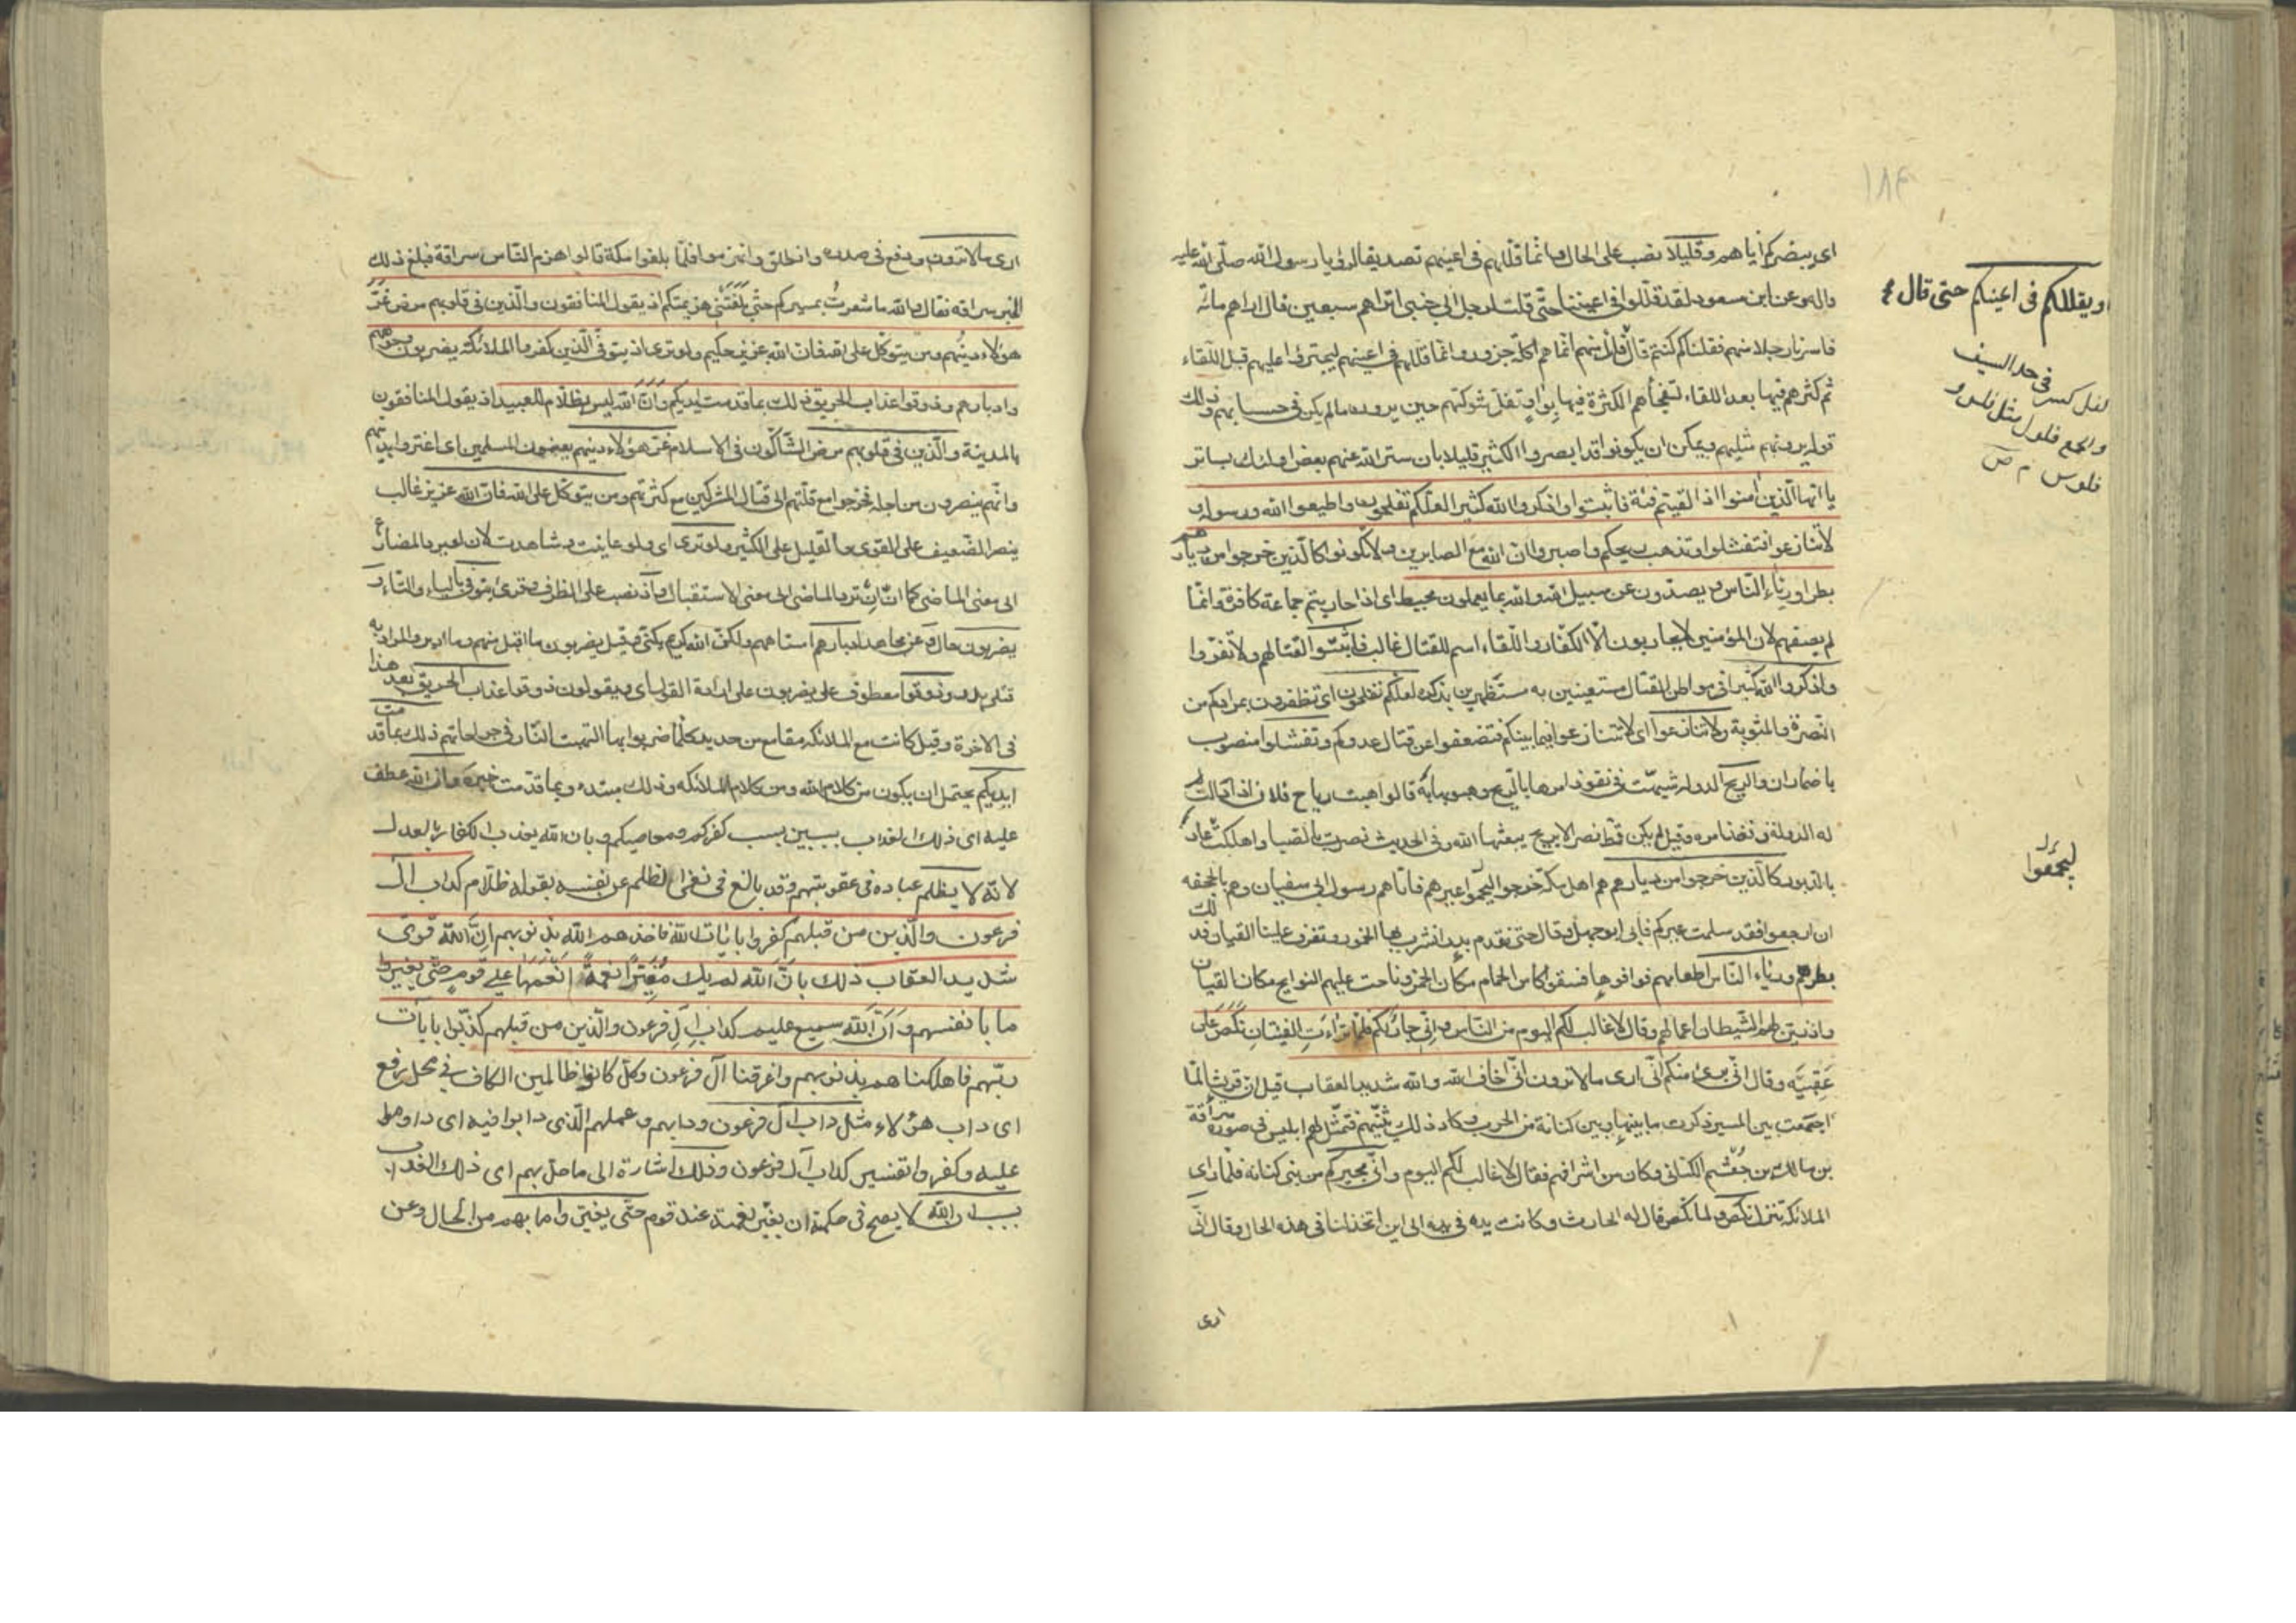 اى يبصركم اياهم وقليلا نصب على الحال وانما قللهم فى اعينهم تصديقا لرؤيا رسول الله صلى الله عليه
واله وعن ابن مسعود لقد قللوا فى اعيننا حتى قلت لرجل الى جنبى اتراهم سبعين قال اراهم مائة
فاسرنا رجلا منهم فقلنا كم كنتم قال الفا منهم انما هم اكلة جزور وانما قللهم فى اعينهم ليجترؤا عليهم قبل اللقاء
ثم كثرهم فيها بعد اللقاء لتفجأهم الكثرة فيها بوا وتفل شوكتهم حين يرون ما لم يكن فى حسابهم وذلك
قوله يرونهم مثليهم ويمكن ان يكونوا قد ابصروا الكثير قليلا بان ستر الله عنهم بعض اولئك بساتر
يا ايها الذين امنوا اذا لقيتم فئة فاثبتوا واذكروا الله كثيرا لعلكم تفلحون واطيعوا الله ورسوله و
لا تنازعوا فتفشلوا وتذهب ريحكم واصبروا ان الله مع الصابرين ولا تكونوا كالذين خرجوا من ديارهم
بطرا ورئاء الناس ويصدون عن سبيل الله والله بما يعملون محيط اى اذا حاربتم جماعة كافرة وانما
لم يصفهم لان المؤمنين لا يحاربون الا الكفار واللقاء اسم للقتال غالب فاثبتوا لقتالهم ولا تفروا
واذكروا الله كثيرا فى مواطن القتال مستعينين به مستظهرين بذكره لعلكم تفلحون اى تظفرون بمرادكم من
النصرة والمثوبة ولا تنازعوا اى لا تتنازعوا فيما بينكم فتضعفوا عن قتال عدوكم وتفشلوا منصوب
باضمار ان والريح الدولة شبهت فى نفوذ امرها بالريح وهبوبها قالوا هبت رياح فلان اذا دالت
له الدولة ونفذ امره وقيل لم يكن قط نصر الا بريح يبعثها الله وفى الحديث نصرت بالصبا واهلكت عاد
بالدبور كالذين خرجوا من ديارهم هم اهل مكة خرجوا ليحموا عيرهم فاتاهم رسول ابى سفيان وهم بالجحفة
ان ارجعوا فقد سلمت عيركم فابى ابو جهل وقال حتى نقدم بدرا نشرب بها الخمور وتعزف علينا القيان فذلك
بطرهم ورئاء الناس اطعامهم فوافوها فسقوا كاس الحمام مكان الخمر وناحت عليهم النوايح مكان القيان
واذ زين لهم الشيطان اعمالهم وقال لا غالب لكم اليوم من الناس وانى جار لكم فلما تراءت الفئتان نكص على
عقبيه وقال انى برئ منكم انى ارى ما لا ترون انى اخاف الله والله شديد العقاب قيل ان قريشا لما
اجتمعت بين المسير ذكرت ما بينها وبين كنانة من الحرب وكاد ذلك يثنيهم فتمثل لهم ابليس فى صورة سراقة
بن مالك بن جعشم الكنانى وكان من اشرافهم فقال لا غالب لكم اليوم وانى مجيركم من بنى كنانة فلما راى
الملائكة تنزل نكص ولما نكص قال له الحارث وكانت يده فى يده الى اين اتخذلنا فى هذه الحال وقال انى
ارى
ويقللكم فى اعينكم حتى قال
كسر فى حد السيف
والجمع فلول مثل فلس و
فلوس م ص
١٨٤
ارى ما لا ترون ودفع فى صدره وانطلق وانهزموا فلما بلغوا مكة قالوا هزم الناس سراقة فبلغ ذلك
الخبر سراقة فقال والله ما شعرت بمسيركم حتى بلغتنى هزيمتكم اذ يقول المنافقون والذين فى قلوبهم مرض غر
هؤلاء دينهم ومن يتوكل على الله فان الله عزيز حكيم ولو ترى اذ يتوفى الذين كفروا الملائكة يضربون وجوههم
وادبارهم وذوقوا عذاب الحريق ذلك بما قدمت ايديكم وان الله ليس بظلام للعبيد اذ يقول المنافقون
بالمدينة والذين فى قلوبهم مرض الشاكون فى الاسلام غر هؤلاء دينهم يعنون المسلمين اى اغتروا بدينهم
وانهم ينصرون من اجله فخرجوا مع قلتهم الى قتال المشركين مع كثرتهم ومن يتوكل على الله فان الله عزيز غالب
ينصر الضعيف على القوى والقليل على الكثير ولو ترى اى ولو عاينت وشاهدت لان لو يرد المضارع
الى معنى الماضى كما ان ان ترد الماضى الى معنى الاستقبال واذ نصب على الظرف وقرئ يتوفى بالياء والتاء و
يضربون حال وعن مجاهد ادبارهم استاههم ولكن الله كريم يكنى وقيل يضربون ما اقبل منهم وما ادبر والمراد به
قتلى بدر وذوقوا معطوف على يضربون على ارادة القول اى ويقولون ذوقوا عذاب الحريق بعد هذا
فى الاخرة وقيل كانت مع الملائكة مقامع من حديد كلما ضربوا بها التهبت النار فى جراحاتهم ذلك بما قدمت
ايديكم يحتمل ان يكون من كلام الله ومن كلام الملائكة وذلك مبتدء وبما قدمت خبره وان الله عطف
عليه اى ذلك العذاب بسببين بسبب كفركم ومعاصيكم وبان الله يعذب الكفار بالعدل
لانه لا يظلم عباده فى عقوبتهم وقد بالغ فى نفى الظلم عن نفسه بقوله ظلام كداب ال
فرعون والذين من قبلهم كفروا بايات الله فاخذهم الله بذنوبهم ان الله قوى
شديد العقاب ذلك بان الله لم يك مغيرا نعمة انعمها على قوم حتى يغيروا
ما بانفسهم وان الله سميع عليم كداب ال فرعون والذين من قبلهم كذبوا بايات
ربهم فاهلكناهم بذنوبهم واغرقنا آل فرعون وكل كانوا ظالمين الكاف فى محل رفع
اى داب هؤلاء مثل داب آل فرعون ودابهم وعملهم الذى دابوا فيه اى داوموا
عليه وكفروا تفسير كداب آل فرعون وذلك اشارة الى ما حل بهم اى ذلك العذاب
بسبب ان الله لا يصح فى حكمة ان يغير نعمة عند قوم حتى يغيروا ما بهم من الحال وعن